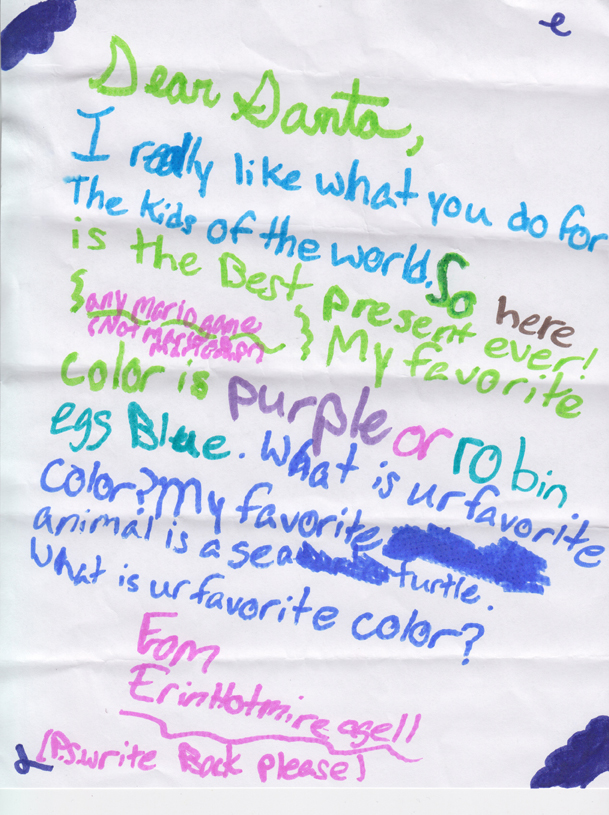 e
Dear Santa,
I really like what you do for
The kids of the world. So here
is the Best present ever!
{any mario game
(Not mario
} My favorite
color is purple or robin
egs Blue. What is ur favorite
color? My favorite
animal is a sea turtle.
What is ur favorite color?
From
Erin Hotmire age 11
(P.S. write Back please)